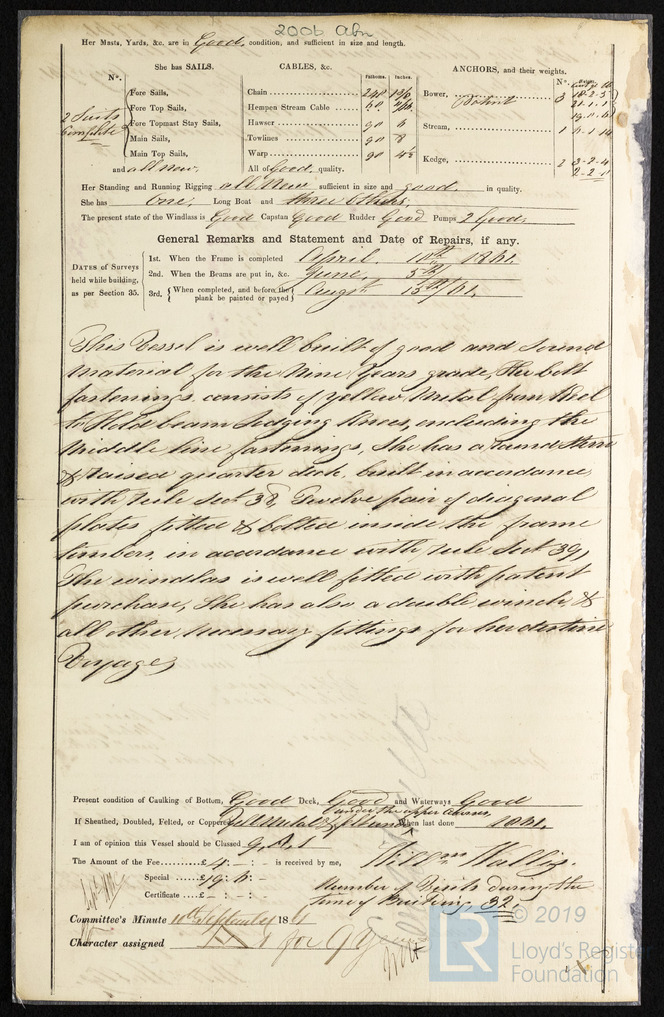 2006 abn
Her Masts, Yards, &c. are in Good, condition, and sufficient in size and length.
She has SAILS. CABLES, &c. ANCHORS, and their weights.
N°. Fathoms. Inches. N°.
Fore Sails, Chain 240 Bower, 3 18.2.5
2 Suits Fore Top Sails, Hempen Stream Cable Patent 21.1.1
Complete Fore Topmast Stay Sails, Hawser 90 6
Main Sails, Towlines 90 8 Stream, 1
Main Top Sails, Warp 90 4½ Kedge, 2 3-2-4
and all new. All of Good, quality. 2-2-
Her Standing and Running Rigging all New sufficient in size and good in quality.
She has one, Long Boat and three others.
The present state of the Windlass is Good Capstan Good Rudder Good Pumps 2 Good.
General Remarks and Statement and Date of Repairs, if any.
DATES of Surveys held while building, as per Section 35.
1st. When the Frame is completed April 10th 1861.
2nd. When the Beams are put in, &c. June, 5th
3rd. { When completed, and before the plank be painted or payed } Augst 13th/61.
This Vessel is well built of good and sound
material for the Nine Years grade, Her bolt
fastenings consists of yellow Metal from Keel
to Hold beam lodging Knees, including the
Middle line fastenings, She has a round Stern
& Raised quarter deck, built in accordance
with Rule Sect 38, Twelve pair of diagonal
plates fitted & bolted inside the frame
timbers, in accordance with Rule Sect 39,
The windlas is well fitted with patent
purchase, She has also a double winch &
all other necessary fittings for her destined
Voyage,
Present condition of Caulking of Bottom, Good Deck, Good and Waterways Good
under the upper
If Sheathed, Doubled, Felted, or Coppered Yell Metal & When last done 1861.
I am of opinion this Vessel should be Classed 9.A.1
The Amount of the Fee £4 : - : - is received by me, Willm Wallis.
Special £19 : : - Number of Visits during the
Certificate £- : - : - time of Building, 32,
Committee's Minute 10th September 1861
Character assigned A 1 for 9 Years
© 2019
LR
Lloyd's Register
Foundation